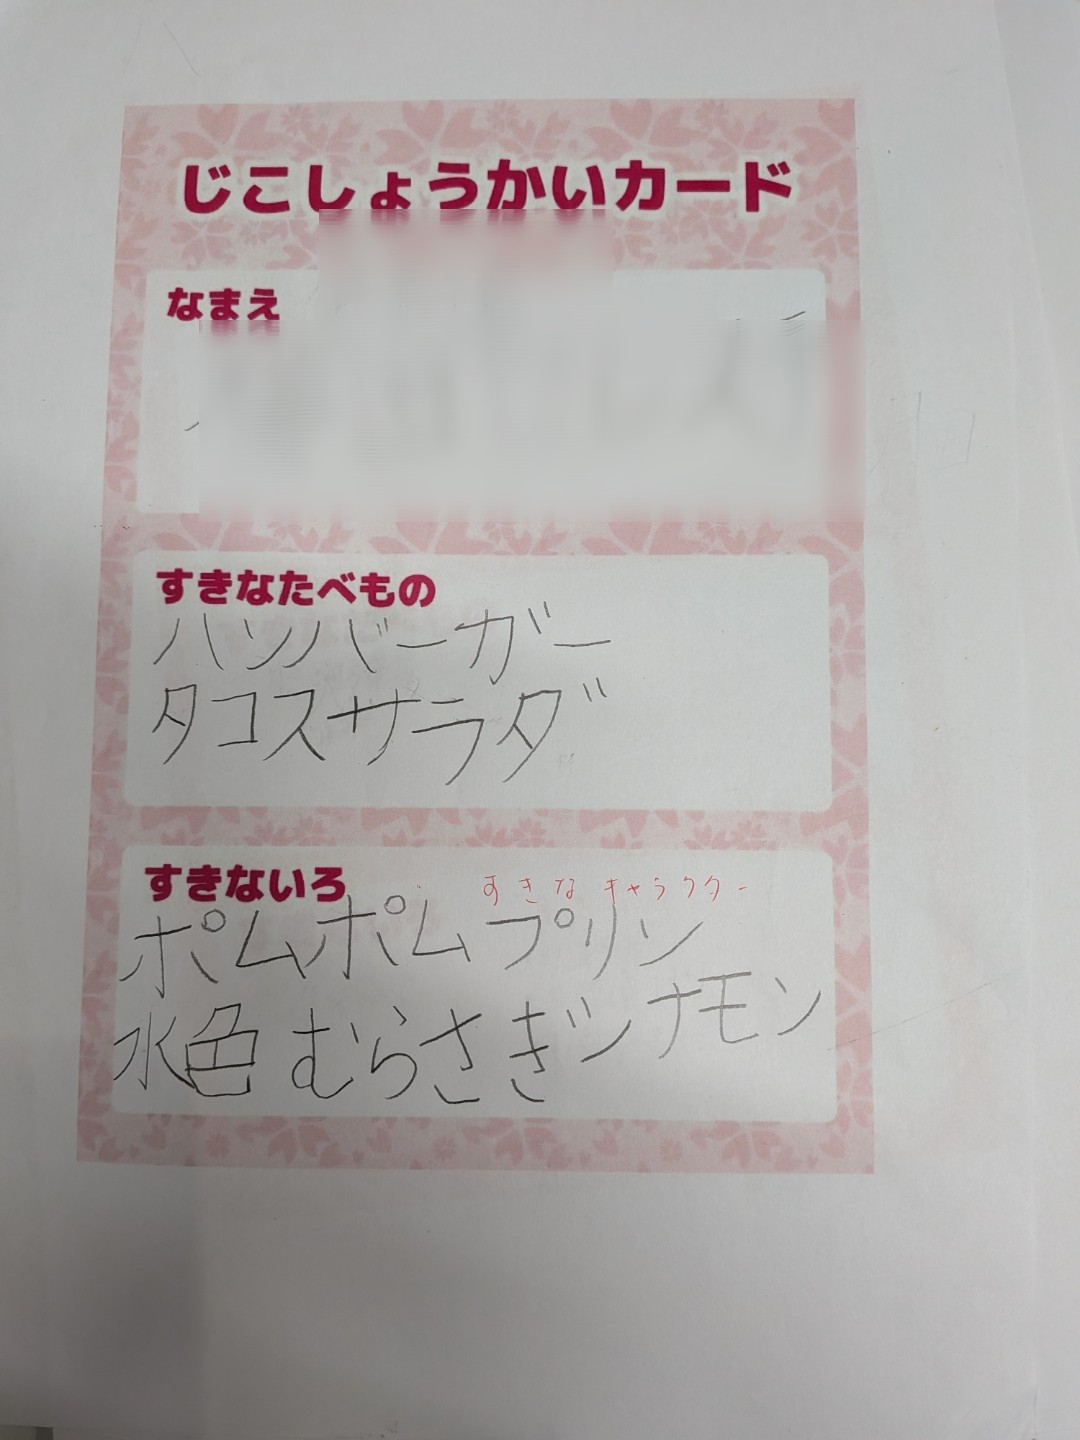 じこしょうかいカード
なまえ
すきなたべもの
ハンバーガー
タコスサラダ
すきないろ
すきなキャラクター
ポムポムプリン
水色 むらさき シナモン